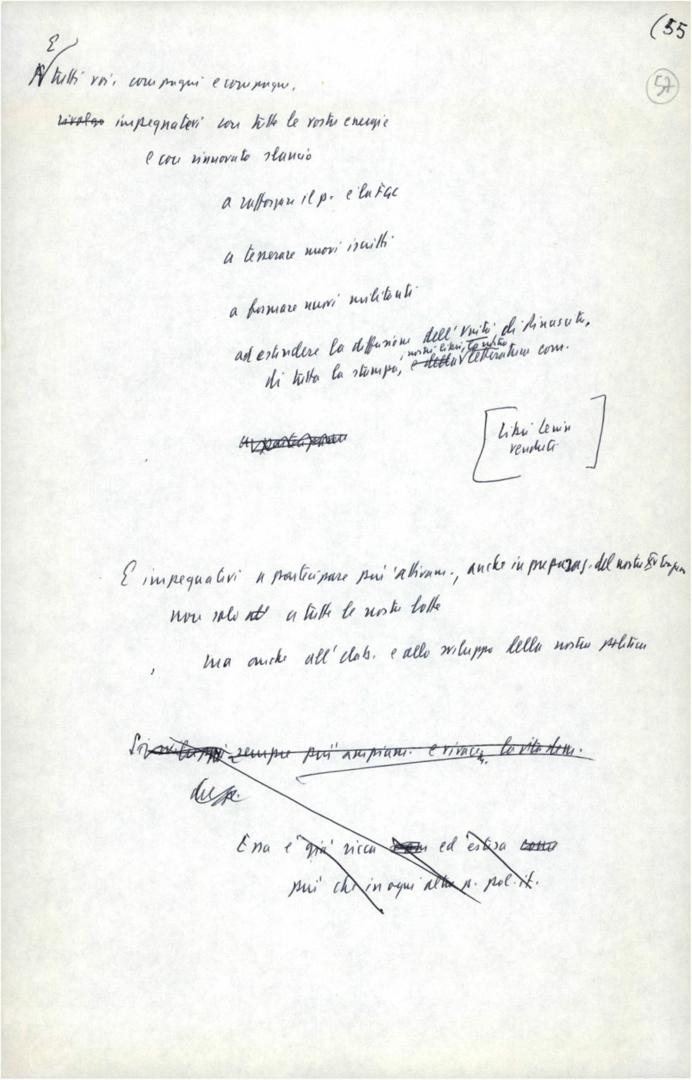 (55
57
E
A tutti voi, compagni e compagne,
rivolgo impegnatevi con tutte le vostre energie
e con rinnovato slancio
a rafforzare il p. e la FGC
a tesserare nuovi iscritti
a formare nuovi militanti
ad estendere la diffusione dell'Unità di Rinascita,
i nostri libri, la nostra
di tutta la stampa, e della letteratura com.
a partecipare
Libri Lenin
venduti
E impegnatevi a partecipare più attivam., anche in preparaz. del nostro XV
non solo a tutte le nostre lotte
ma anche all'elab. e allo sviluppo della nostra politica
Si sviluppi sempre più ampiam. e vivacem. la vita dem.
del p.
Essa è già ricca ed estesa come
più che in ogni altro p. pol. it.